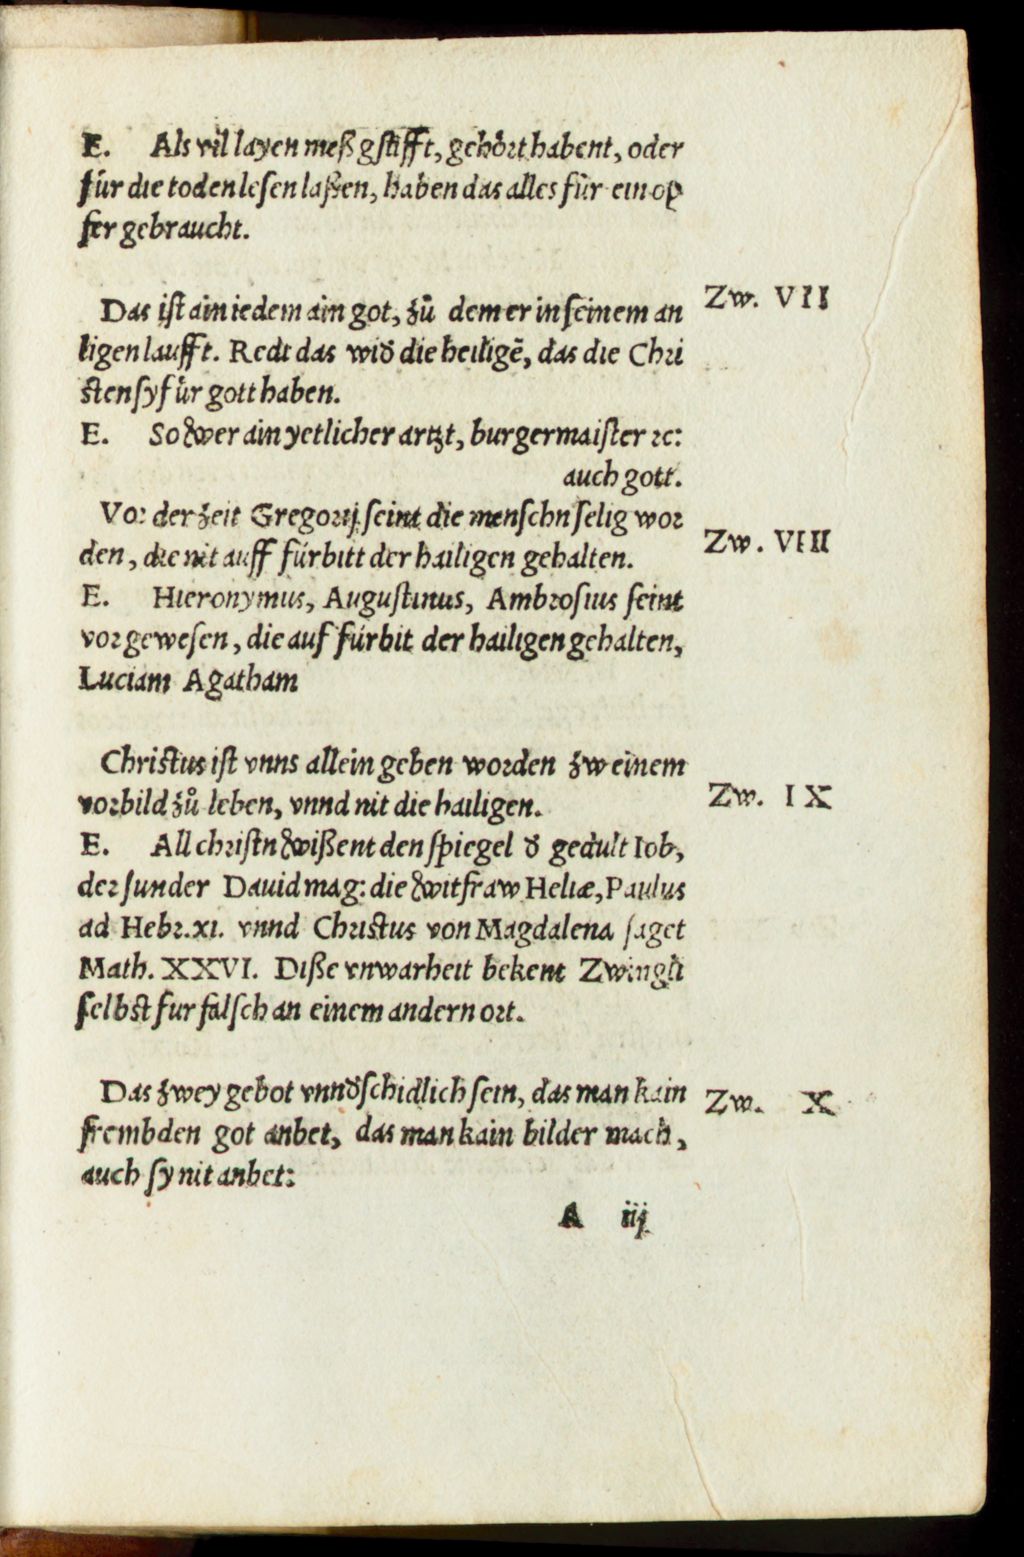 E. Als vil layen meß gstifft, gehört habent, oder
für die toden lesen laßen, haben das alles für ein op
fer gebraucht.
Das ist ain iedem ain got, zů dem er in seinem an
Zw. VII
ligen laufft. Redt das wid̕ die heiligē, das die Chri
sten sy für gott haben.
E. So wer ain yetlicher artzt, burgermaister ꝛc:
auch gott.
Vor der zeit Gregorij seint die menschn selig wor
den, die nit auff fürbitt der hailigen gehalten.
Zw. VIII
E. Hieronymus, Augustinus, Ambrosius seint
vor gewesen, die auf fürbit der hailigen gehalten,
Luciam Agatham
Christus ist vnns allein geben worden zw einem
vorbild zů leben, vnnd nit die hailigen.
Zw. IX
E. All christn wißent den spiegel d̕ gedult Iob,
der sunder Dauid mag: die witfraw Heliæ, Paulus
ad Hebr. xi. vnnd Christus von Magdalena saget
Math. XXVI. Diße vnwarheit bekent Zwingli
selbst fur falsch an einem andern ort.
Das zwey gebot vnnd̕schidlich sein, das man kain
Zw. X
frembden got anbet, das man kain bilder mach,
auch sy nit anbet:
A iij